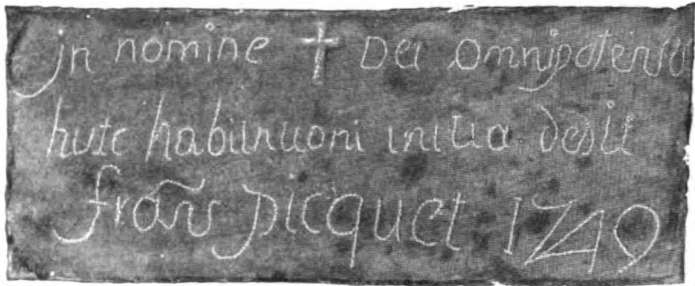 jn nomine † Dei omnipotentis
huic habitationi initia dedit
frans picquet 1749